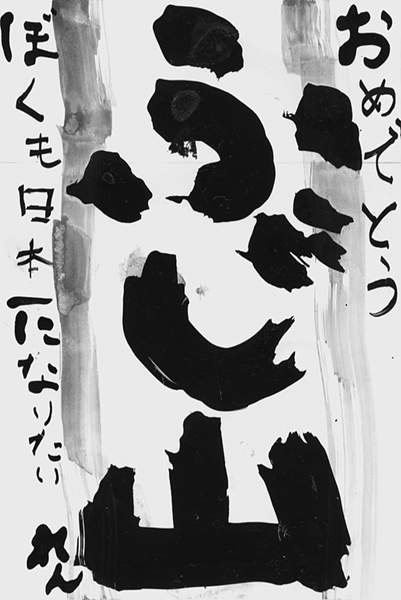 おめでとう
ふじ山
ぼくも日本一になりたい
れん